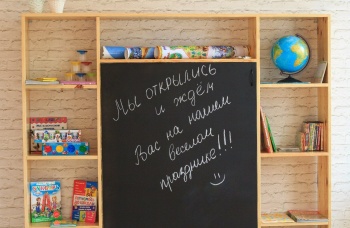 Мы открылись
и ждём
Вас на нашем
веселом
празднике!!!